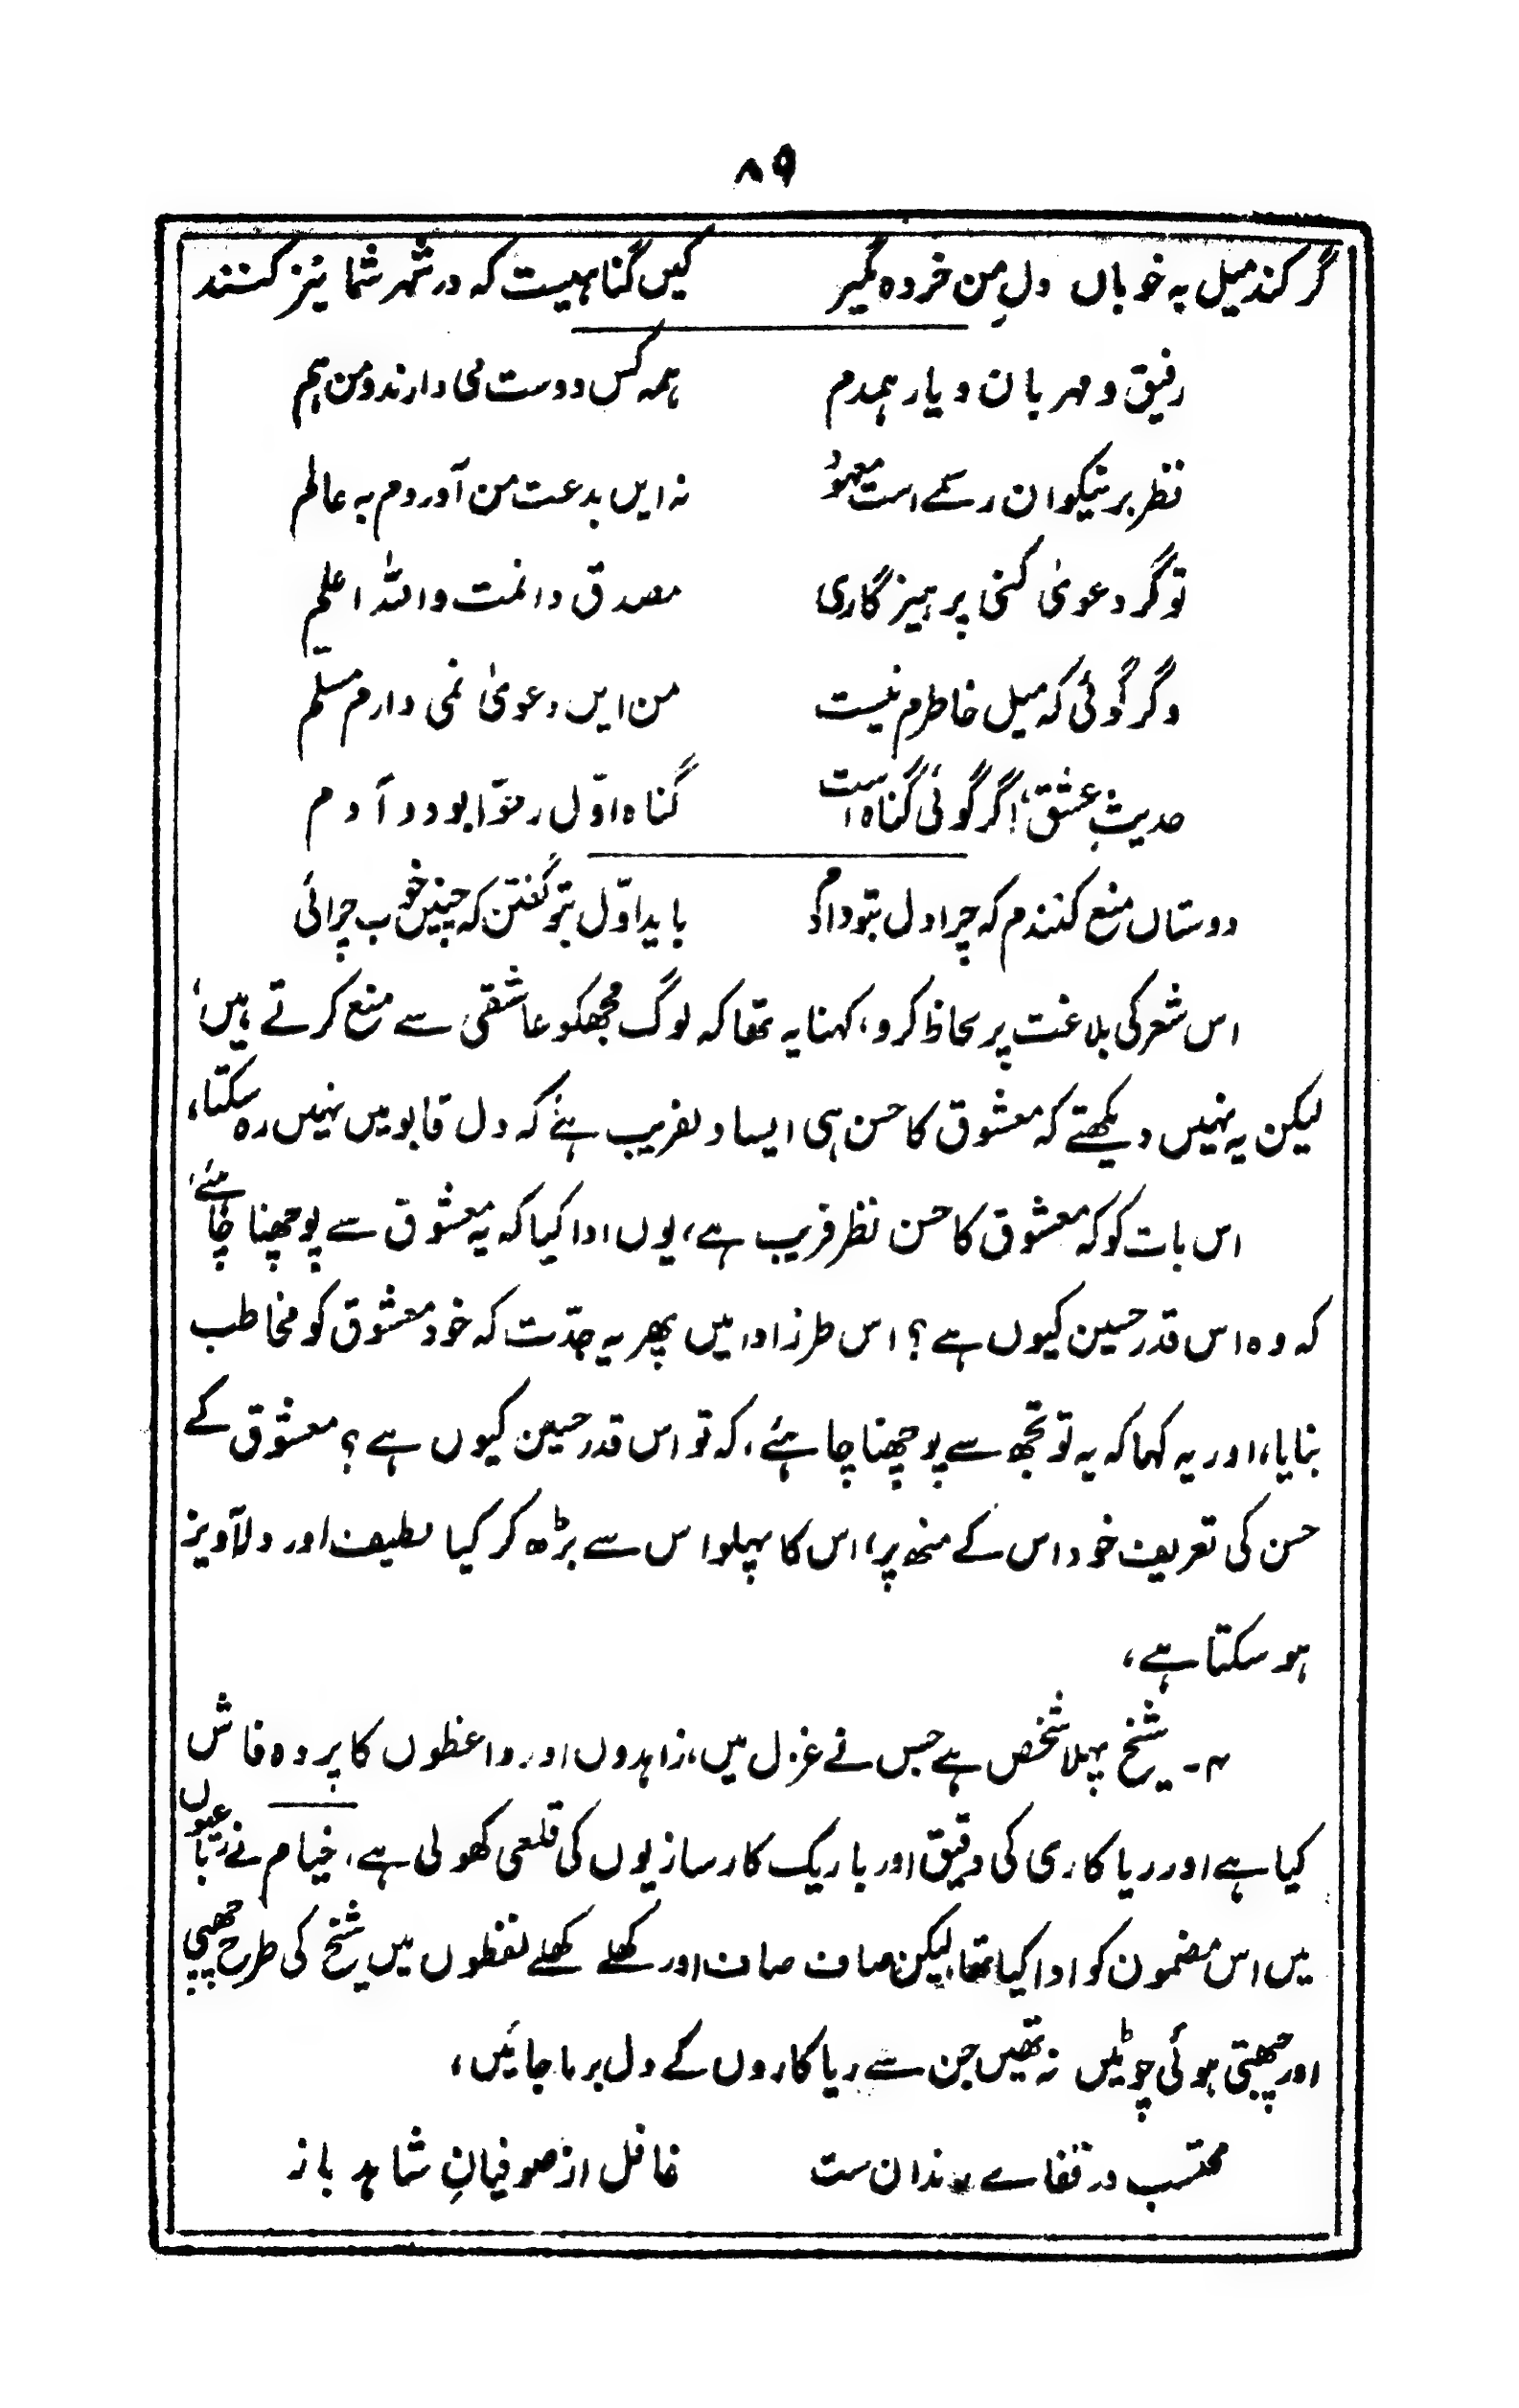 ۸۹
گر کند میل به خوباں دلِ من خرده مگیر کیں گناہیست که در شہر شما نیز کنند
رفیق و مہربان و یار ہمدم ہمه کس دوست می دارند و من ہم
نظر بر نیکوان رسمے است معہود نه ایں بدعت من آوردم به عالم
تو گر دعویٰ کنی پرہیزگاری مصدق دانمت واللہ اعلم
وگر گوئی که میل خاطرم نیست من ایں دعویٰ نمی دارم مسلّم
حدیثِ عشق، اگر گوئی گناہ است گناہ اوّل ز حوّا بود و آدم
دوستاں منع کنندم که چرا دل بتو دادم باید اوّل بتو گفتن که چنیں خوب چرائی
اس شعر کی بلاغت پر لحاظ کرو، کہنا یہ تھا کہ لوگ مجھکو عاشقی سے منع کرتے ہیں،
لیکن یہ نہیں دیکھتے کہ معشوق کا حسن ہی ایسا دلفریب ہے، کہ دل قابو میں نہیں رہ سکتا،
اس بات کو کہ معشوق کا حسن نظر فریب ہے، یوں ادا کیا کہ یہ معشوق سے پوچھنا چاہئے،
کہ وہ اس قدر حسین کیوں ہے؟ اس طرز ادا میں پھر یہ جدّت کہ خود معشوق کو مخاطب
بنایا، اور یہ کہا کہ یہ تو تجھ سے پوچھنا چاہئے، کہ تو اس قدر حسین کیوں ہے؟ معشوق کے
حسن کی تعریف خود اس کے منھ پر، اس کا پہلو اس سے بڑھ کر کیا لطیف اور دلآویز
ہو سکتا ہے،
۴۔ شیخ پہلا شخص ہے جس نے غزل میں، زاہدوں اور واعظوں کا پردہ فاش
کیا ہے اور ریا کاری کی دقیق اور باریک کارسازیوں کی قلعی کھولی ہے، خیام نے رباعیوں
میں اس مضمون کو ادا کیا تھا، لیکن صاف صاف اور کھلے کھلے لفظوں میں شیخ کی طرح چھپی
اور چھبتی ہوئی چوٹیں نہ تھیں جن سے ریا کاروں کے دل برما جائیں،
محتسب در قفاے رندان ست غافل از صوفیانِ شاہد باز